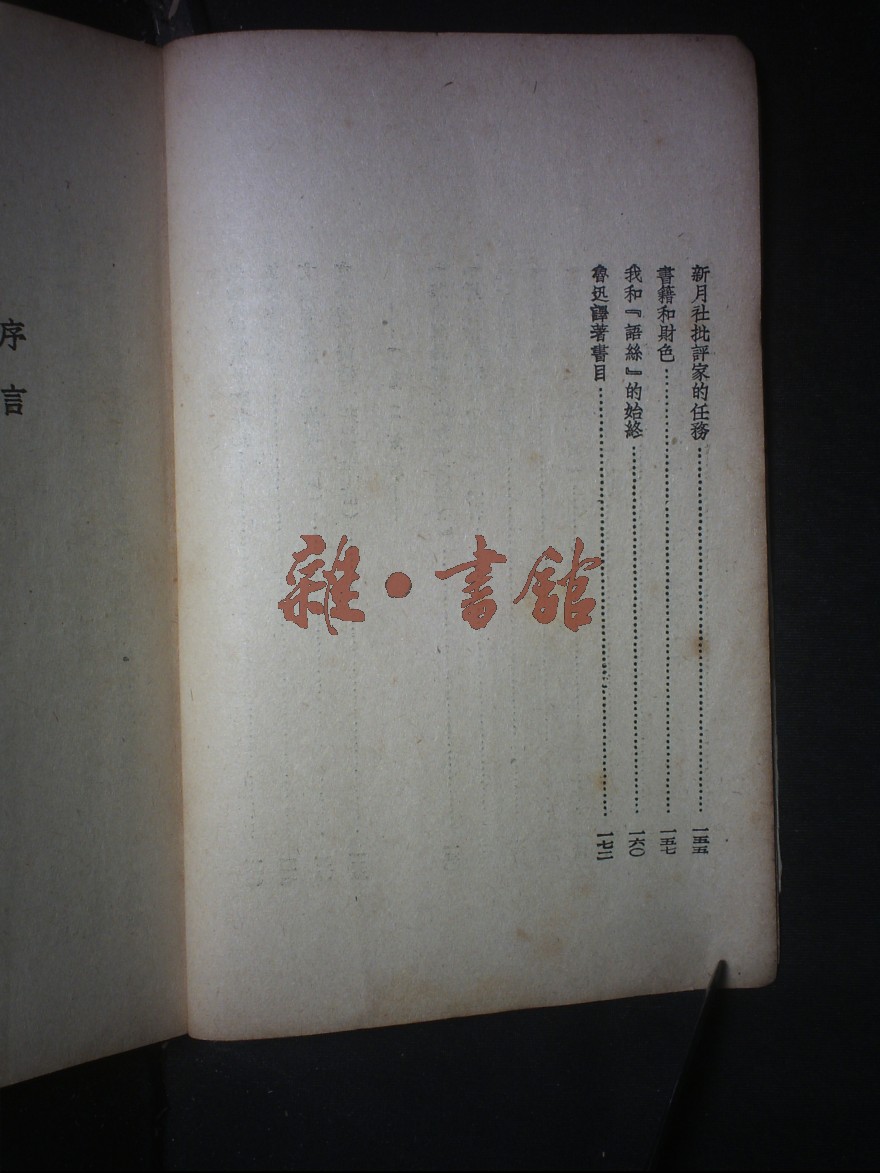 新月社批評家的任務……一五五
書籍和財色……一五七
我和『語絲』的始終……一六〇
魯迅譯著書目……一七二
序言
雜·書館